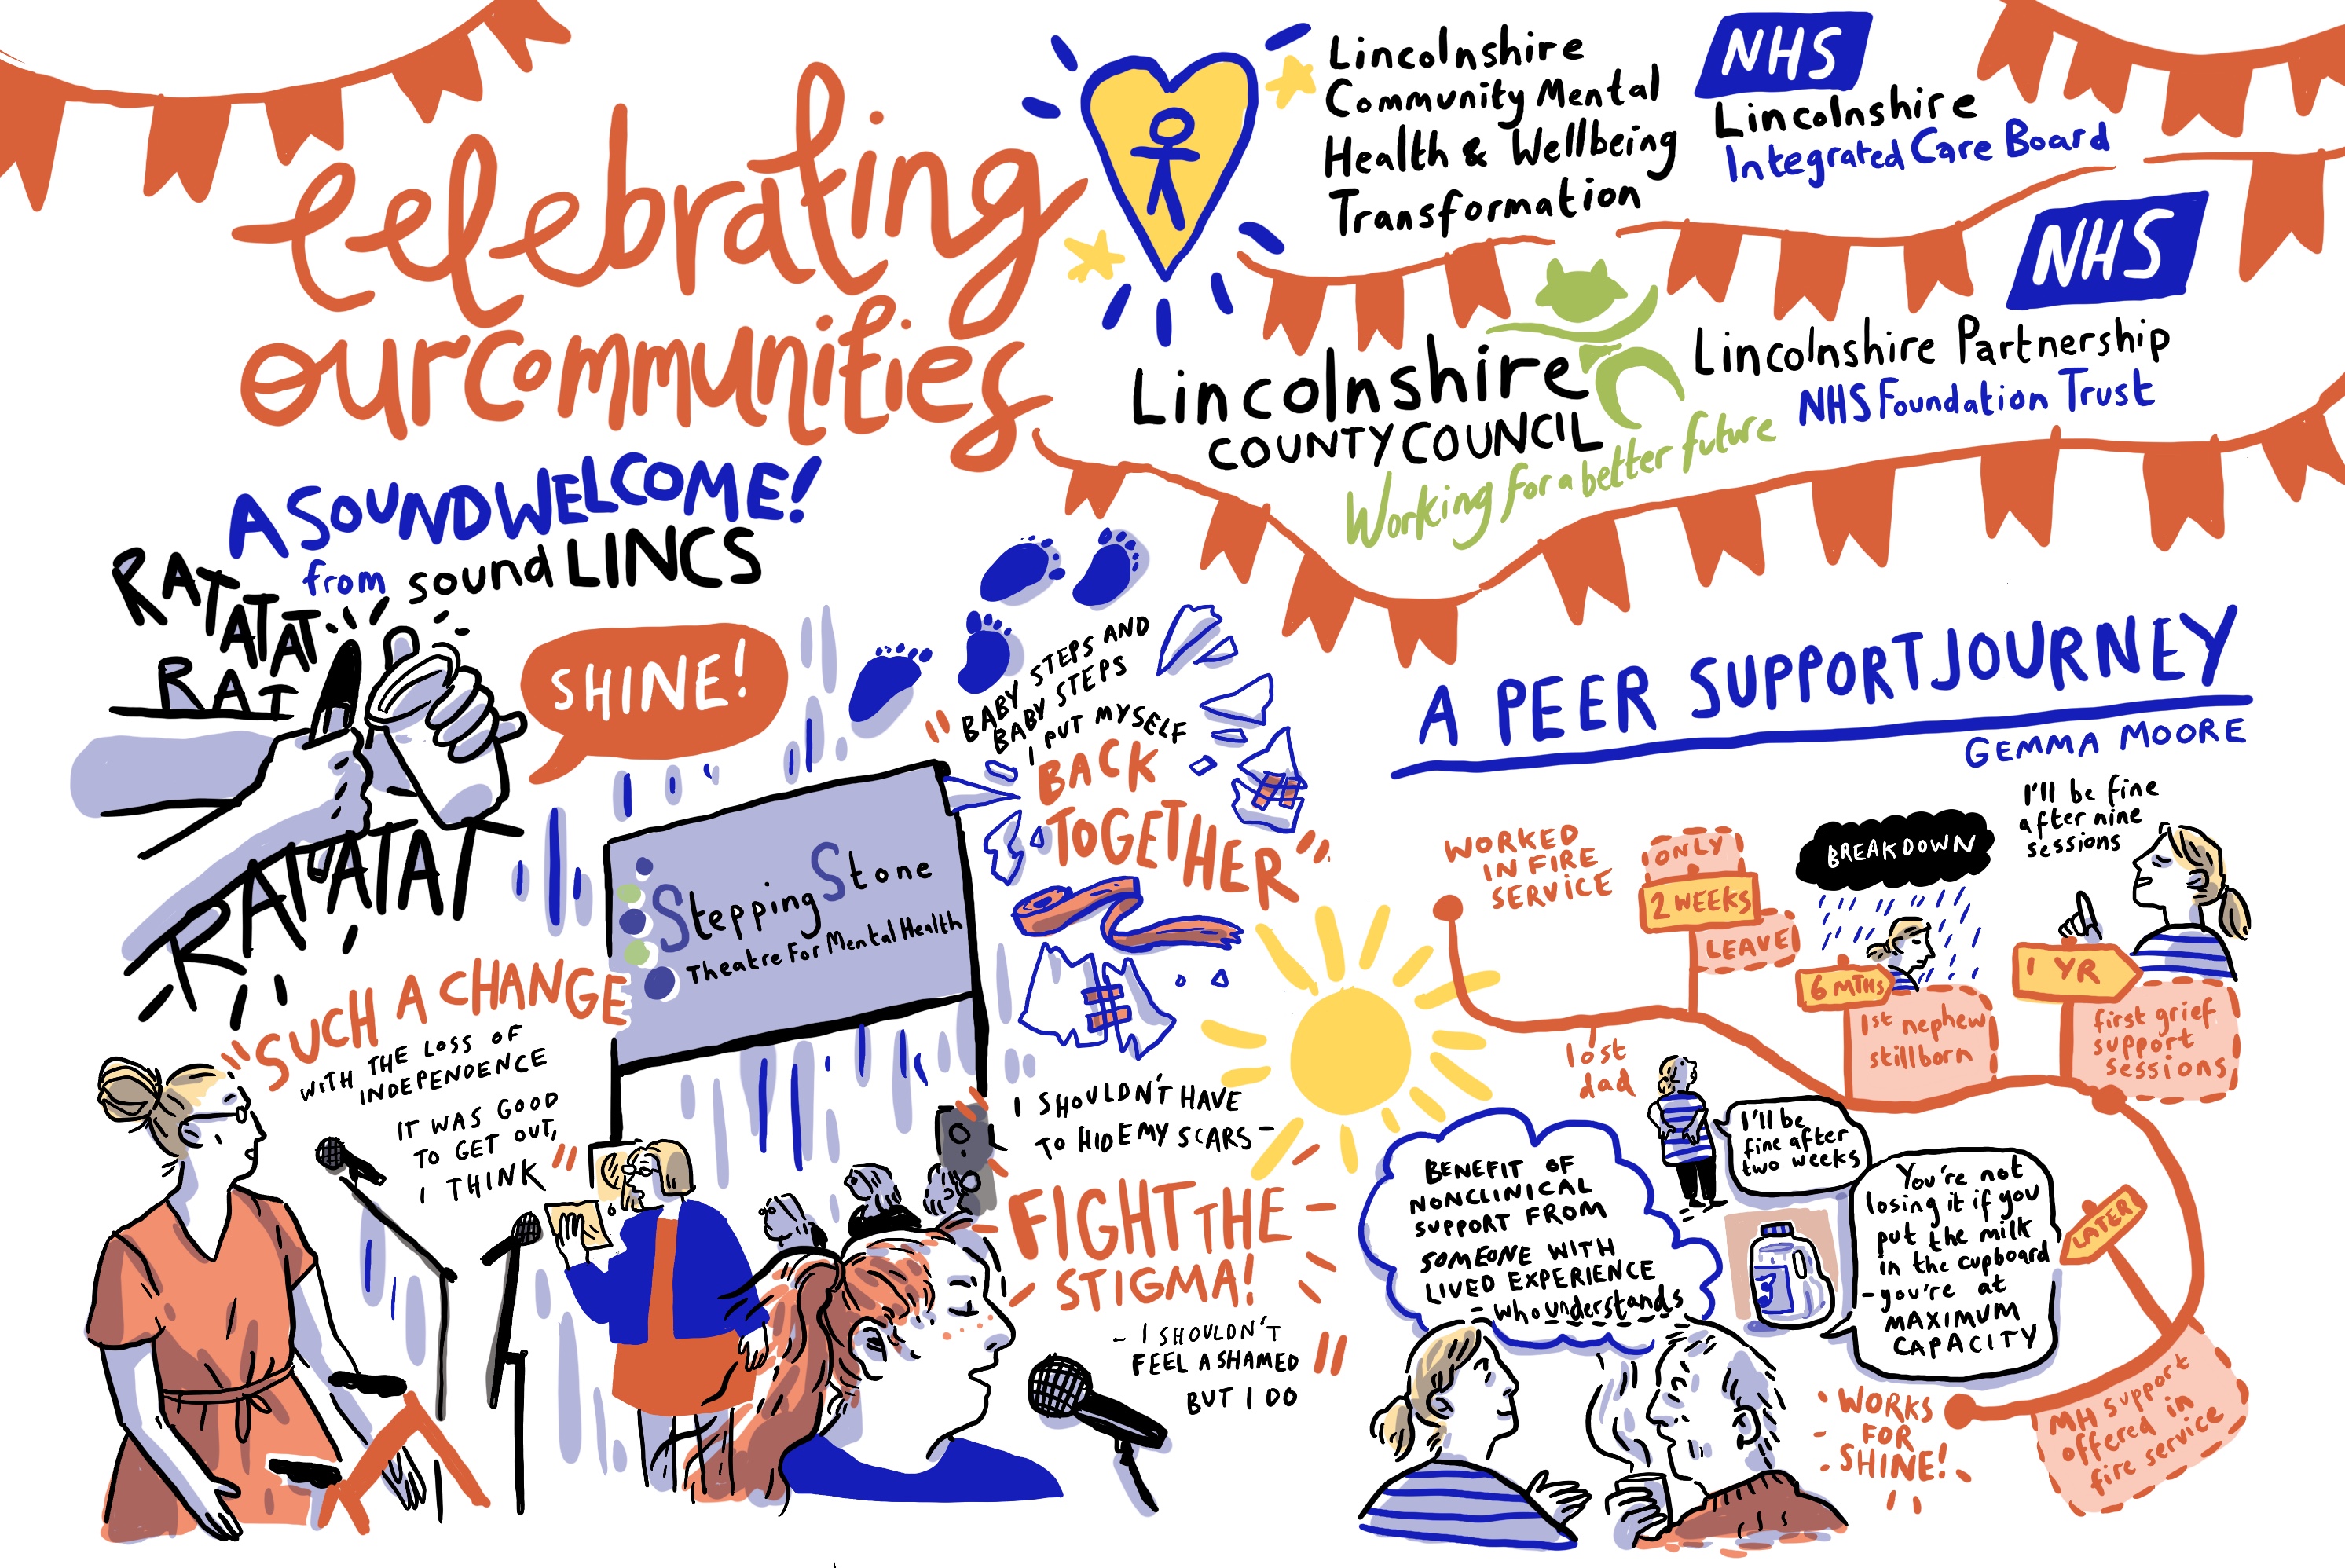 Celebrating
our communities
Lincolnshire
Community Mental
Health & Wellbeing
Transformation
NHS
Lincolnshire
Integrated Care Board
NHS
Lincolnshire Partnership
NHS Foundation Trust
Lincolnshire
COUNTY COUNCIL
Working for a better future
A SOUND WELCOME!
from soundLINCS
RATATATAT
RAT
RATATATAT
SHINE!
SteppingStone
Theatre For Mental Health
"SUCH A CHANGE
WITH THE LOSS OF
INDEPENDENCE
IT WAS GOOD
TO GET OUT,
I THINK"
"BABY STEPS AND
BABY STEPS
I PUT MYSELF
BACK
TOGETHER"
"I SHOULDN'T HAVE
TO HIDE MY SCARS-
FIGHT THE
STIGMA!
- I SHOULDN'T
FEEL ASHAMED
BUT I DO"
A PEER SUPPORT JOURNEY
GEMMA MOORE
WORKED
IN FIRE
SERVICE
lost
dad
ONLY
2 WEEKS
LEAVE!
I'll be
fine after
two weeks
BREAKDOWN
6 MTHS
1st nephew
stillborn
I'll be fine
after nine
sessions
1 YR
first grief
support
sessions
You're not
losing it if you
put the milk
in the cupboard
- you're at
MAXIMUM
CAPACITY
LATER
MH support
offered in
fire service
WORKS
FOR
SHINE!
BENEFIT OF
NONCLINICAL
SUPPORT FROM
SOMEONE WITH
LIVED EXPERIENCE
- who understands